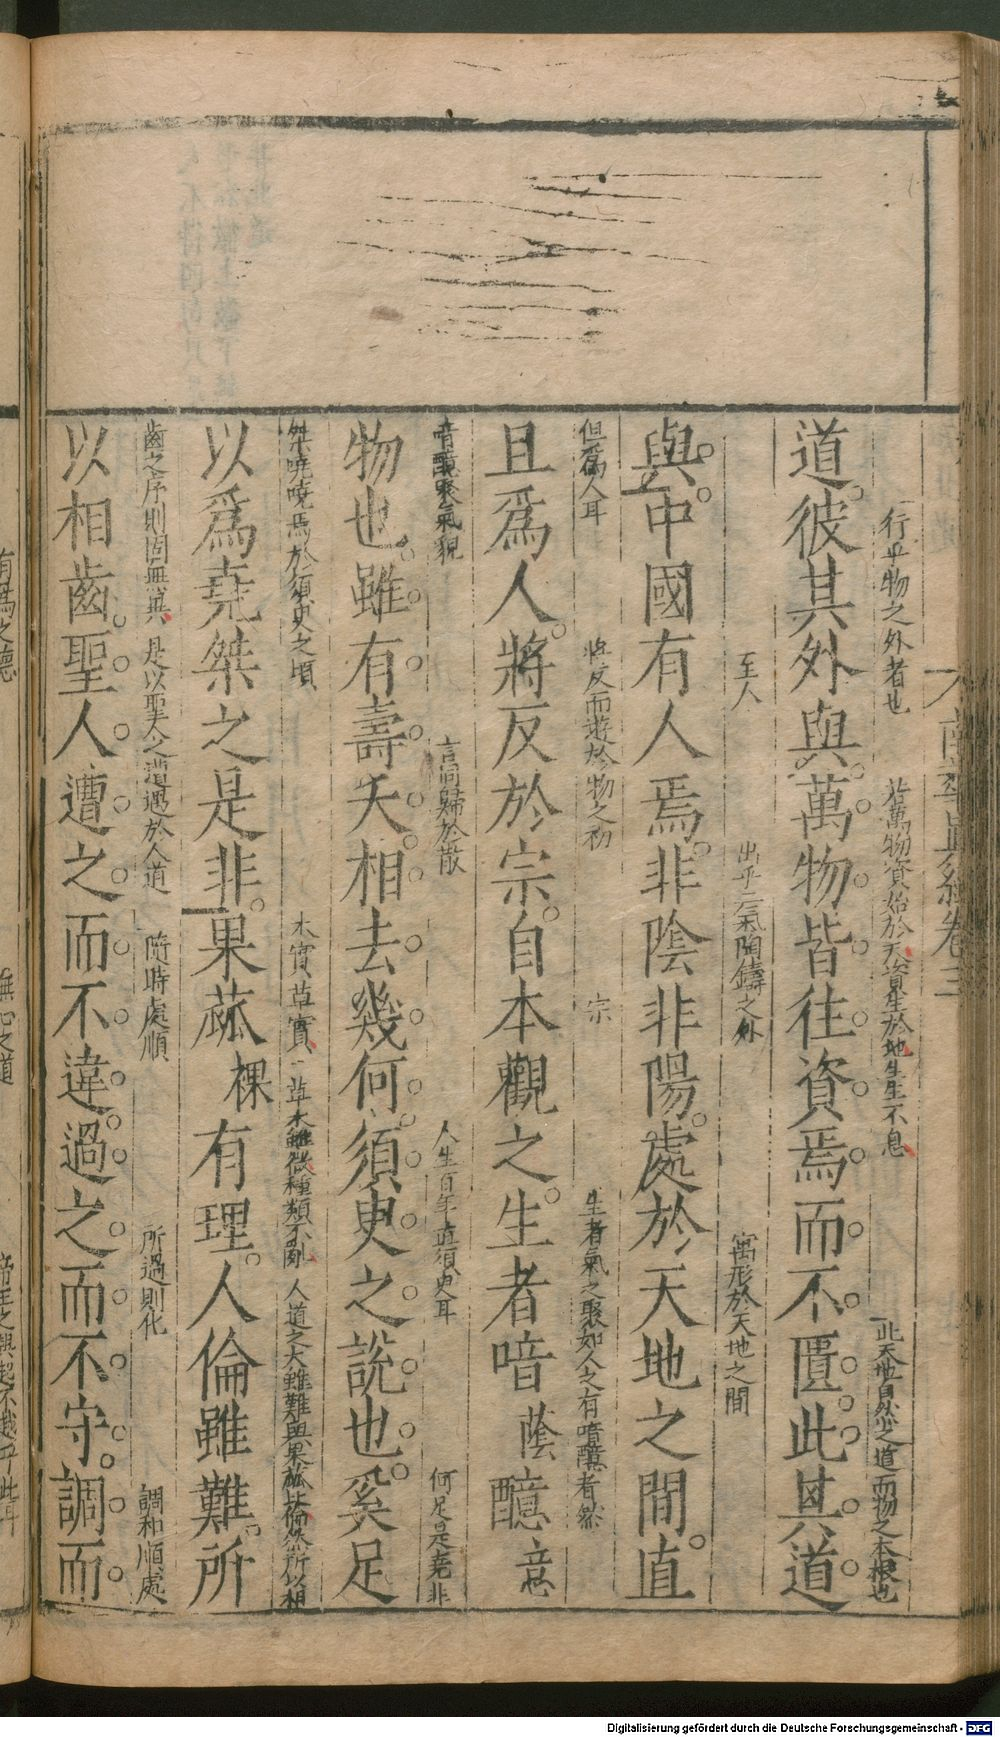 南華真經卷三
行乎物之外者也 若萬物資始於天資生於地生生不息 此天地自然之道而物之本根也
道彼其外與萬物皆往資焉而不匱此其道
至人 出乎二氣陶鑄之外 寓形於天地之間
與中國有人焉非陰非陽處於天地之間直
但為人耳 將反而遊於物之初 宗 生者氣之聚如人之有喑醷者然
且爲人將反於宗自本觀之生者喑蔭醷意
喑醷聚氣貌 言同歸於散 人生百年直須臾耳 何足是堯非
物也雖有壽夭相去幾何須臾之說也奚足
桀嘵嘵焉於須臾之頃 木實草實 草木雖微種類不亂 人道之大雖難與果蓏比倫然所以相
以爲堯桀之是非果蓏裸有理人倫雖難所
齒之序則固無異 是以聖人之遭遇於人道 隨時處順 所過則化 調和順處
以相齒聖人遭之而不違過之而不守調而
有為之德 無心之道 帝王之興起不越乎此耳
Digitalisierung gefördert durch die Deutsche Forschungsgemeinschaft - DFG